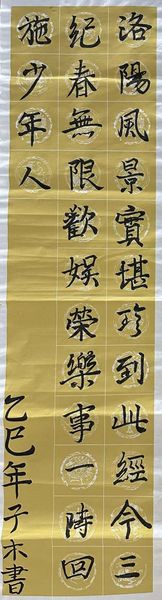 洛陽風景實堪珍到此經今三
紀春無限歡娛榮樂事一時回
施少年人
乙巳年子木書